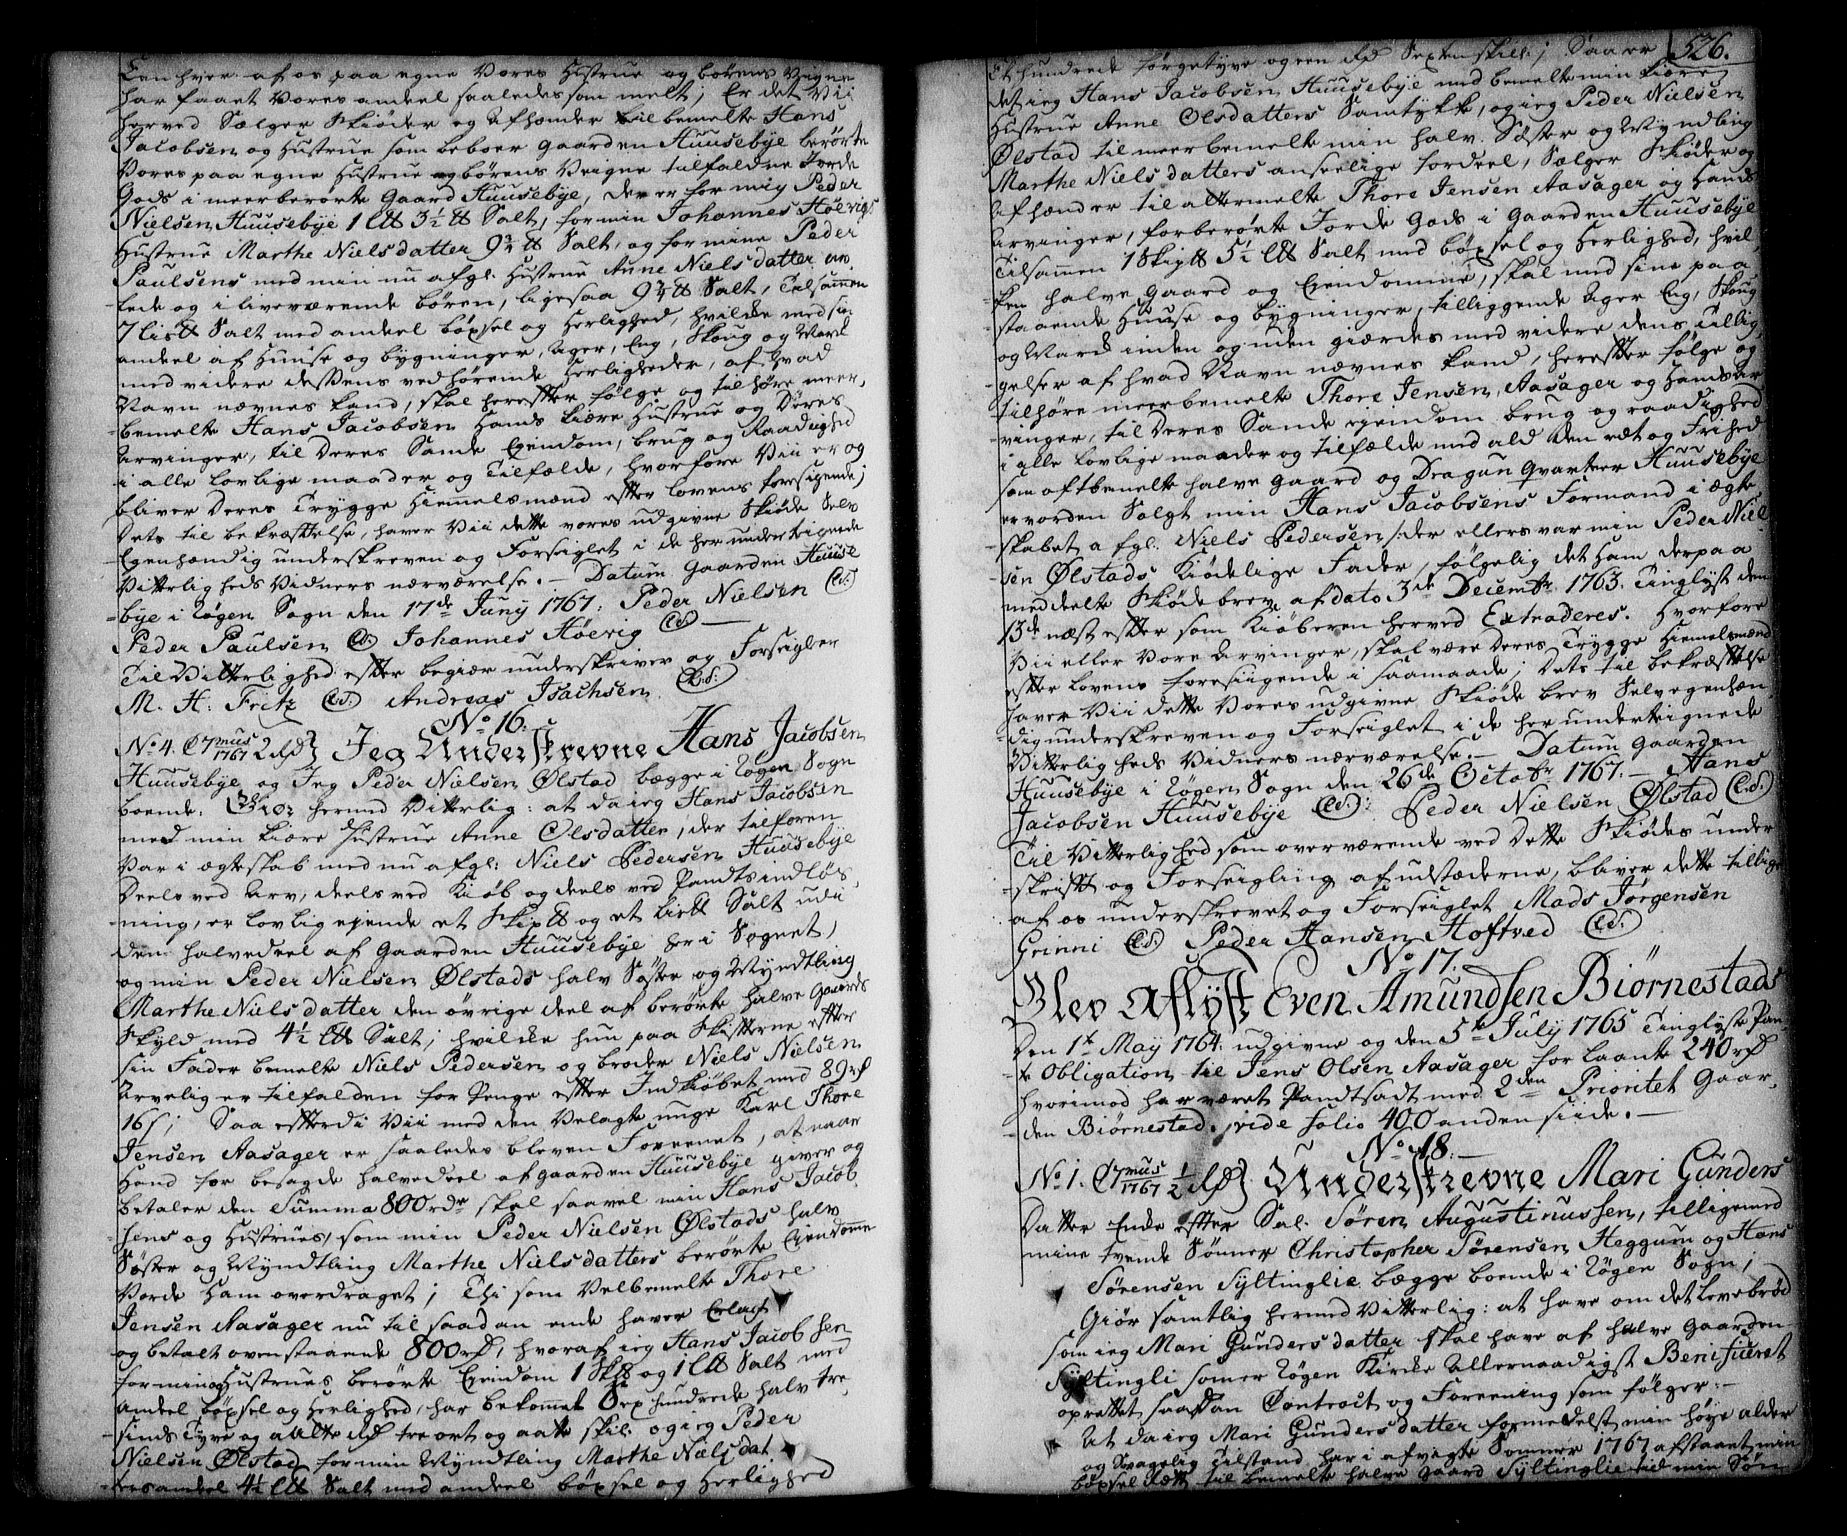 Een hver af os paa egne Vores Hustrue og børens Vegne
har faaet Vores andeel saaledes som melt; Er det Vii
herved Sælger Skiøder og Afhænder til bemelte Hans
Jacobsen og Hustrue som beboer gaarden Huusebye berørte
Vores paa egne Hustrue og børens Veigne tilfaldne Jorde
Gods i meerberørte Gaard Huusebye, der er for mig Peder
Nielsen Huusebye 1 L℔ 3½ ℔ Salt, for min Johannes Høevigs
Hustrue Marthe Nielsdatter 9¾ ℔ Salt, og for mine Peder
Paulsens med min nu afgl. Hustrue Anne Nielsdatter av
lede og i live værende børen, ligesaa 9¾ ℔ Salt, Tilsammen
7 Lis℔ Salt med andeel bøxsel og Herlighed, hvilke med sin
andeel af Huuse og bygninger, Ager, Eng, Skoug og Mark
med videre dessens vedhørende Herligheder, af hvad
Navn nævnes kand, skal herefter følge og tilhøre meer-
bemelte Hans Jacobsen Hands kiære Hustrue og Deres
Arvinger, til Deres Sande Eiendom, brug og Raadighed
i alle lovlige maader og Tilfælde, hvorfore Vii er og
bliver Deres Trygge Hiemelsmænd efter Lovens foresigende;
Dets til bekræftelse, haver Vii dette vores udgivne Skiøde Selv
Egenhændig underskreven og Forsiglet i de herunder teignede
Vitterligheds Vidners nærværelse. – Datum Gaarden Huuse
bye i Røgen Sogn den 17de Juny 1767. Peder Nielsen (LS.)
Peder Paulsen (LS.) Johannes Høevig (LS.) –
Til Vitterlighed efter begiær underskriver og Forsigler
M. H. Fritz (LS.) Andreas Isachsen (LS:)
No 16.
No 4. C7mus 1767 2 rd Jeg Underskrevne Hans Jacobsen
Huusebye og Jeg Peder Nielsen Ølstad begge i Røgen Sogn
boende. Giør hermed Vitterlig: at da ieg Hans Jacobsen
med min kiære Hustrue Anne Olsdatter, der tilforen
Var i ægteskab med nu afgl: Niels Pedersen Huusebye
Deels ved Arv, deels ved Kiøb og deels ved Pandts indløs-
ning, er lovlig ejende et Skip℔ og et Lis℔ Salt udi
den halvedeel af Gaarden Huusebye her i Sognet,
og min Peder Nielsen Ølstads halv Søster og Myndtling
Marthe Nielsdatter den øvrige deel af berørte halve Gaards
Skyld med 4½ L℔ Salt, hvilke hun paa Skifterne efter
sin Fader bemelte Niels Pedersen og broder Niels Nielsen
Arvelig er tilfalden for Penge efter Indkiøbet med 89 rd
16 s; Saa efterdi Vii med den Velagte unge Karl Thore
Jensen Aasager er saaledes bleven Foreenet, at naar
Hand for besagde halvedeel af gaarden Huusebye giver og
betaler den Summa 800 rdr skal saavel min Hans Jacob-
sens og Hustrues, som min Peder Nielsen Ølstads halv
Søster og Myndtling Marthe Nielsdatters berørte Eiendomme
Vorde Ham overdraget; Thi som Velbemelte Thore
Jensen Aasager nu til saadan ende haver Erlagt
og betalt ovenstaaende 800 rd, hvoraf ieg Hans Jacobsen
for min og Hustrues berørte Eiendom 1 Sk℔ og 1 L℔ Salt med
andeel bøxsel og Herlighed har bekommet Sex hundrede halv tre
sinds Tyve og Aatte rd tre ort og aatte skil. og ieg Peder
Nielsen Ølstad for min Myndtling Marthe Nielsdat
ters andeel 4½ L℔ Salt med andeel bøxsel og Herlighed
526.
Et hundrede førgetyve og een rd Sexten skill; Saa er
det ieg Hans Jacobsen Huusebye med bemelte min kiære
Hustrue Anne Olsdatters Samtykke, og ieg Peder Nielsen
Ølstad til meerbemelte min halv Søster og Myndling
Marthe Nielsdatters anseelige fordeel, Sælger Skiøder og
Afhænder til ommelte Thore Jensen Aasager og Hands
Arvinger, forberørte Jorde Gods i Gaarden Huusebye
Tilsammen 1 Skip℔ 5½ L℔ Salt med bøxsel og Herlighed, hvil-
ken halve Gaard og Eiendomme, skal med sine paa
staaende Huuse og bygninger, tilliggende Ager Eng, Skoug
og Mark inden og uden giærdes med videre dens tillig
gelser af hvad Navn nævnes kand, herefter følge og
tilhøre meerbemelte Thore Jensen, Aasager og Hands Ar
vinger, til Deres Sande ejendom brug og raadighed
i alle lovlige maader og tilfælde med ald den ret og Frihed
som oftbemelte halve Gaard og Dragun Qvarteer Huusebye
er vorden Solgt min Hans Jacobsens Formand i ægte
skabet afgl. Niels Pedersen /: der ellers var min Peder Niel
sen Ølstads Kiødelige Fader, følgelig det Ham derpaa
meddeelte Skiødebrev af dato 3de Decembr 1763. Tinglyst den
13de næst efter som Kiøberen herved Extraderes. Hvorfore
Vii eller Vore Arvinger, skal være Deres Trygge Hiemelsmænd
efter Lovens foresiigende i saamaade; Dets til bekræftelse
haver Vii dette Vores udgivne Skiøde brev Selv egenhæn
dig underskreven og Forsiglet i de her undertegnede
Vitterligheds Vidners nærværelse. – Datum Gaarden
Huusebye i Røgen Sogn den 26de Octobr 1767. – Hans
Jacobsen Huusebye (LS.): Peder Nielsen Ølstad (LS.)
Til Vitterlighed som overværende ved Dette Skiødes under
skrift og Forseigling af udstæderne, bliver dette tillige
af os underskrevet og Forseiglet Mads Jørgensen
Grinni (LS.) Peder Hansen Hoftved (LS.)
No 17.
Blev Aflyst Even Amundsen Biørnestads
Den 1te May 1764. udgivne og den 5te July 1765 Tinglyste Pan-
te Obligation til Jens Olsen Aasager for laante 240 rd
hvorimod har været Pandtsadt med 2den Prioritet Gaar-
den Biørnestad. vide folio 400 anden siide. –
No 18. –
No 1. C7mus 1767 ½ rd Underskrevne Mari Gunders
Datter Enke efter Sal. Søren Augustinussen, tilligemed
mine tvende Sønner Christopher Sørensen Heggum og Hans
Sørensen Syltinglie begge boende i Røgen Sogn;
Giør samtlig hermed Vitterlig: at have om det Levebrød
som ieg Mari Gundersdatter skal have af halve Gaarden
Syltingli som er Røgen Kirke Allernaadigst Benificeret
oprettet saadan Contract og Foreening som følger: –
At da ieg Mari Gundersdatter formedelst min høye alder
og Svagelig Tilstand har i afvigte Sommer 1767 afstaaet min
bøxsel Ræt til bemelte halve Gaard Syltinglie til min Søn